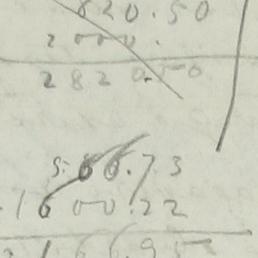 820.50
2000.
2820.50
566.73
1600.22
2166.95